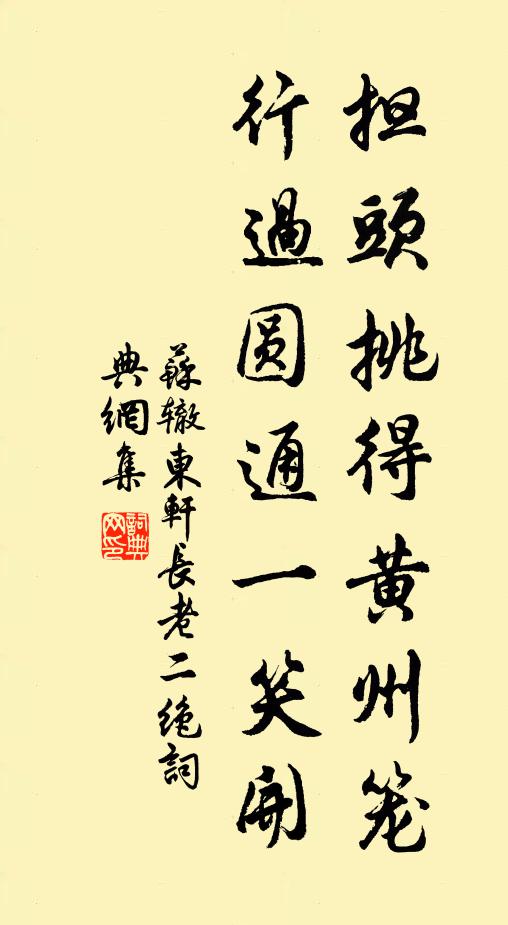 担頭挑得黄州笼
行過圆通一笑開
蘇辙東軒長老二绝詞
典網集
詞典网印